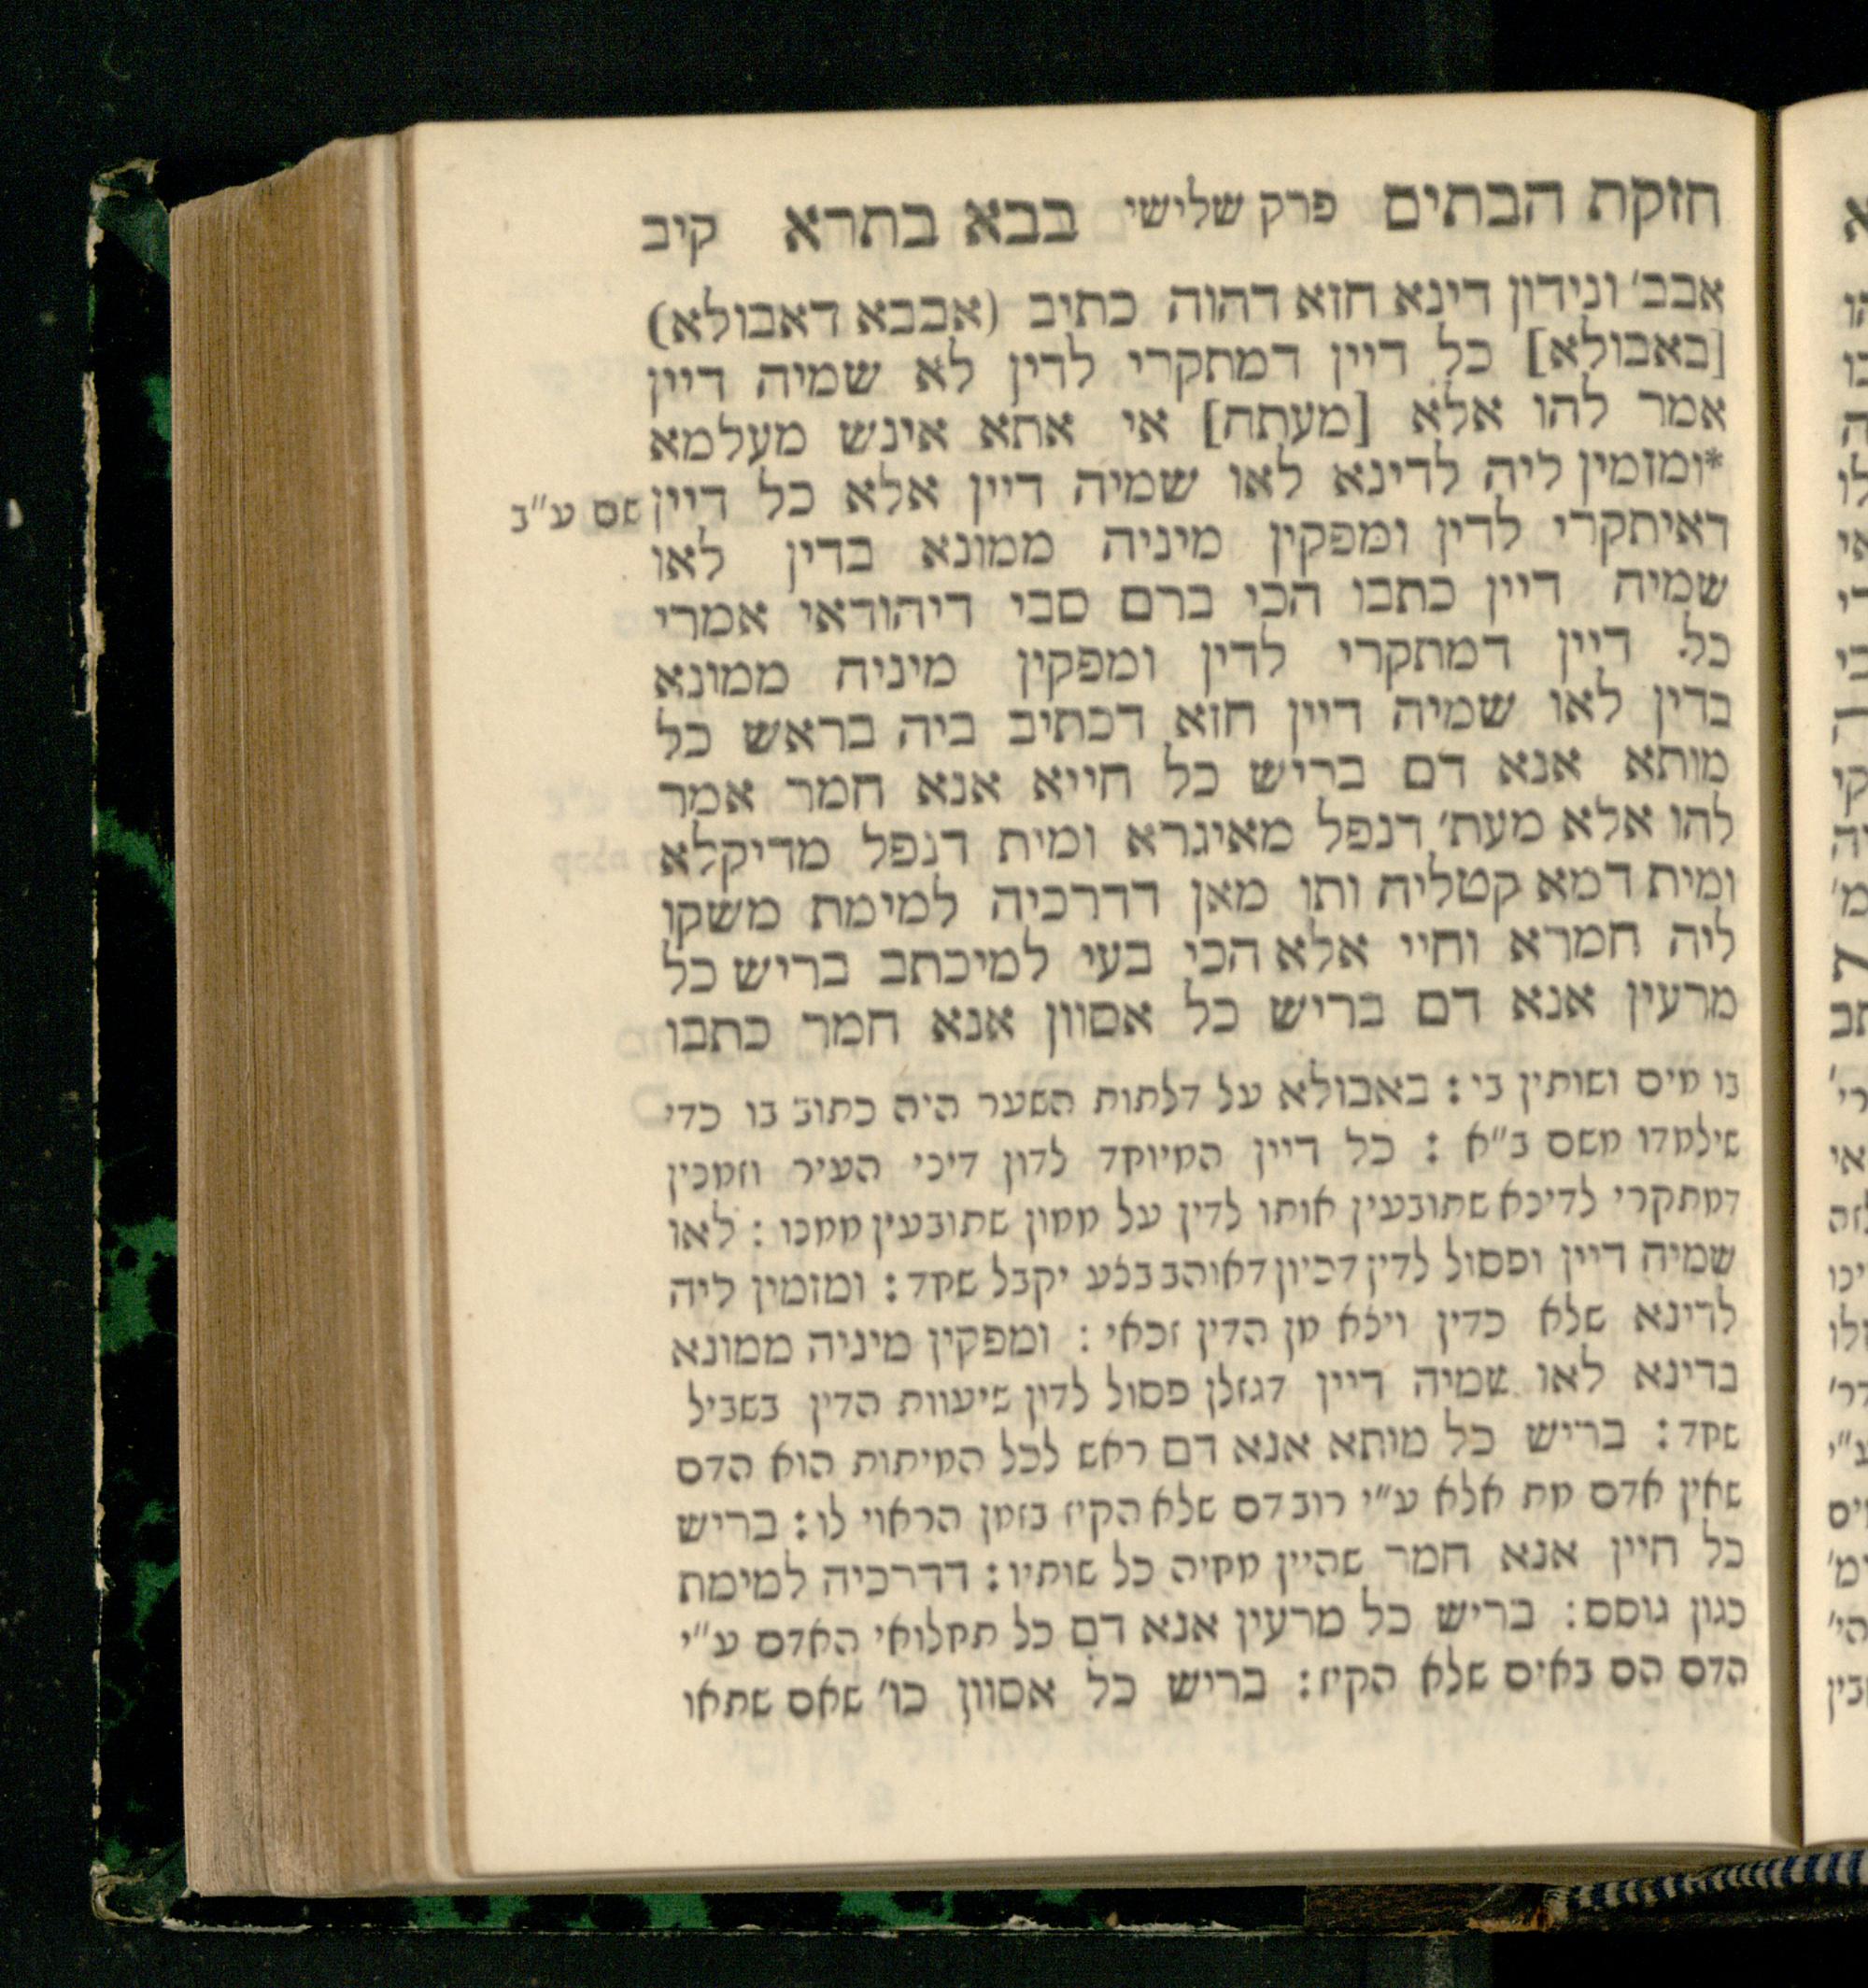 חזקת הבתים פרק שלישי בבא בתרא קיב
אבב׳ ונידון דינא חזא דהוה כתיב (אבבא דאבולא)
[באבולא] כל דיין דמתקרי לדין לא שמיה דיין
אמר להו אלא [מעתה] אי אתא אינש מעלמא
*ומזמין ליה לדינא לאו שמיה דיין אלא כל דיין
שם ע״ב
דאיתקרי לדין ומפקין מיניה ממונא בדין לאו
שמיה דיין כתבו הכי ברם סבי דיהודאי אמרי
כל דיין דמתקרי לדין ומפקין מיניה ממונא
בדין לאו שמיה דיין חזא דכתיב ביה בראש כל
מותא אנא דם בריש כל חייא אנא חמר אמר
להו אלא מעת׳ דנפל מאיגרא ומית דנפל מדיקלא
ומית דמא קטליה ותו מאן דדרכיה למימת משקו
ליה חמרא וחיי אלא הכי בעי למיכתב בריש כל
מרעין אנא דם בריש כל אסוון אנא חמר כתבו
בו מים ושותין בי: באבולא על דלתות השער היה כתוב בו כדי
שילמדו משם ב״א: כל דיין המיוחד לדון דיני העיר וזמנין
דמתקרי לדינא שתובעין אותו לדין על ממון שתובעין ממנו: לאו
שמיה דיין ופסול לדין דכיון דאוהב בצע יקבל שחד: ומזמין ליה
לדינא שלא כדין ויצא מן הדין זכאי: ומפקין מיניה ממונא
בדינא לאו שמיה דיין דגזלן פסול לדון שיעוות הדין בשביל
שחד: בריש כל מותא אנא דם ראש לכל המיתות הוא הדם
שאין אדם מת אלא ע״י רוב דם שלא הקיז בזמן הראוי לו: בריש
כל חיין אנא חמר שהיין מחיה כל שותיו: דדרכיה למימת
כגון גוסס: בריש כל מרעין אנא דם כל תחלואי האדם ע״י
הדם הם באים שלא הקיז: בריש כל אסוון כו׳ שאם שתאו